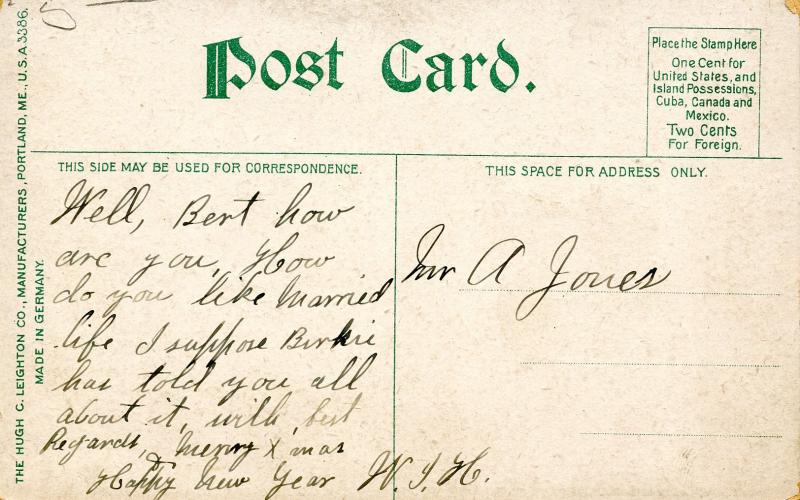 THE HUGH C. LEIGHTON CO., MANUFACTURERS, PORTLAND, ME., U.S.A 3386.
MADE IN GERMANY.
Post Card.
Place the Stamp Here
One Cent for
United States, and
Island Possessions,
Cuba, Canada and
Mexico.
Two Cents
For Foreign.
THIS SIDE MAY BE USED FOR CORRESPONDENCE.
THIS SPACE FOR ADDRESS ONLY.
Well, Bert how
are you, How
do you like Married
life I suppose
has told you all
about it, with best
Regards, Merry X mas
& Happy New Year W.I.H.
Mr A Jones